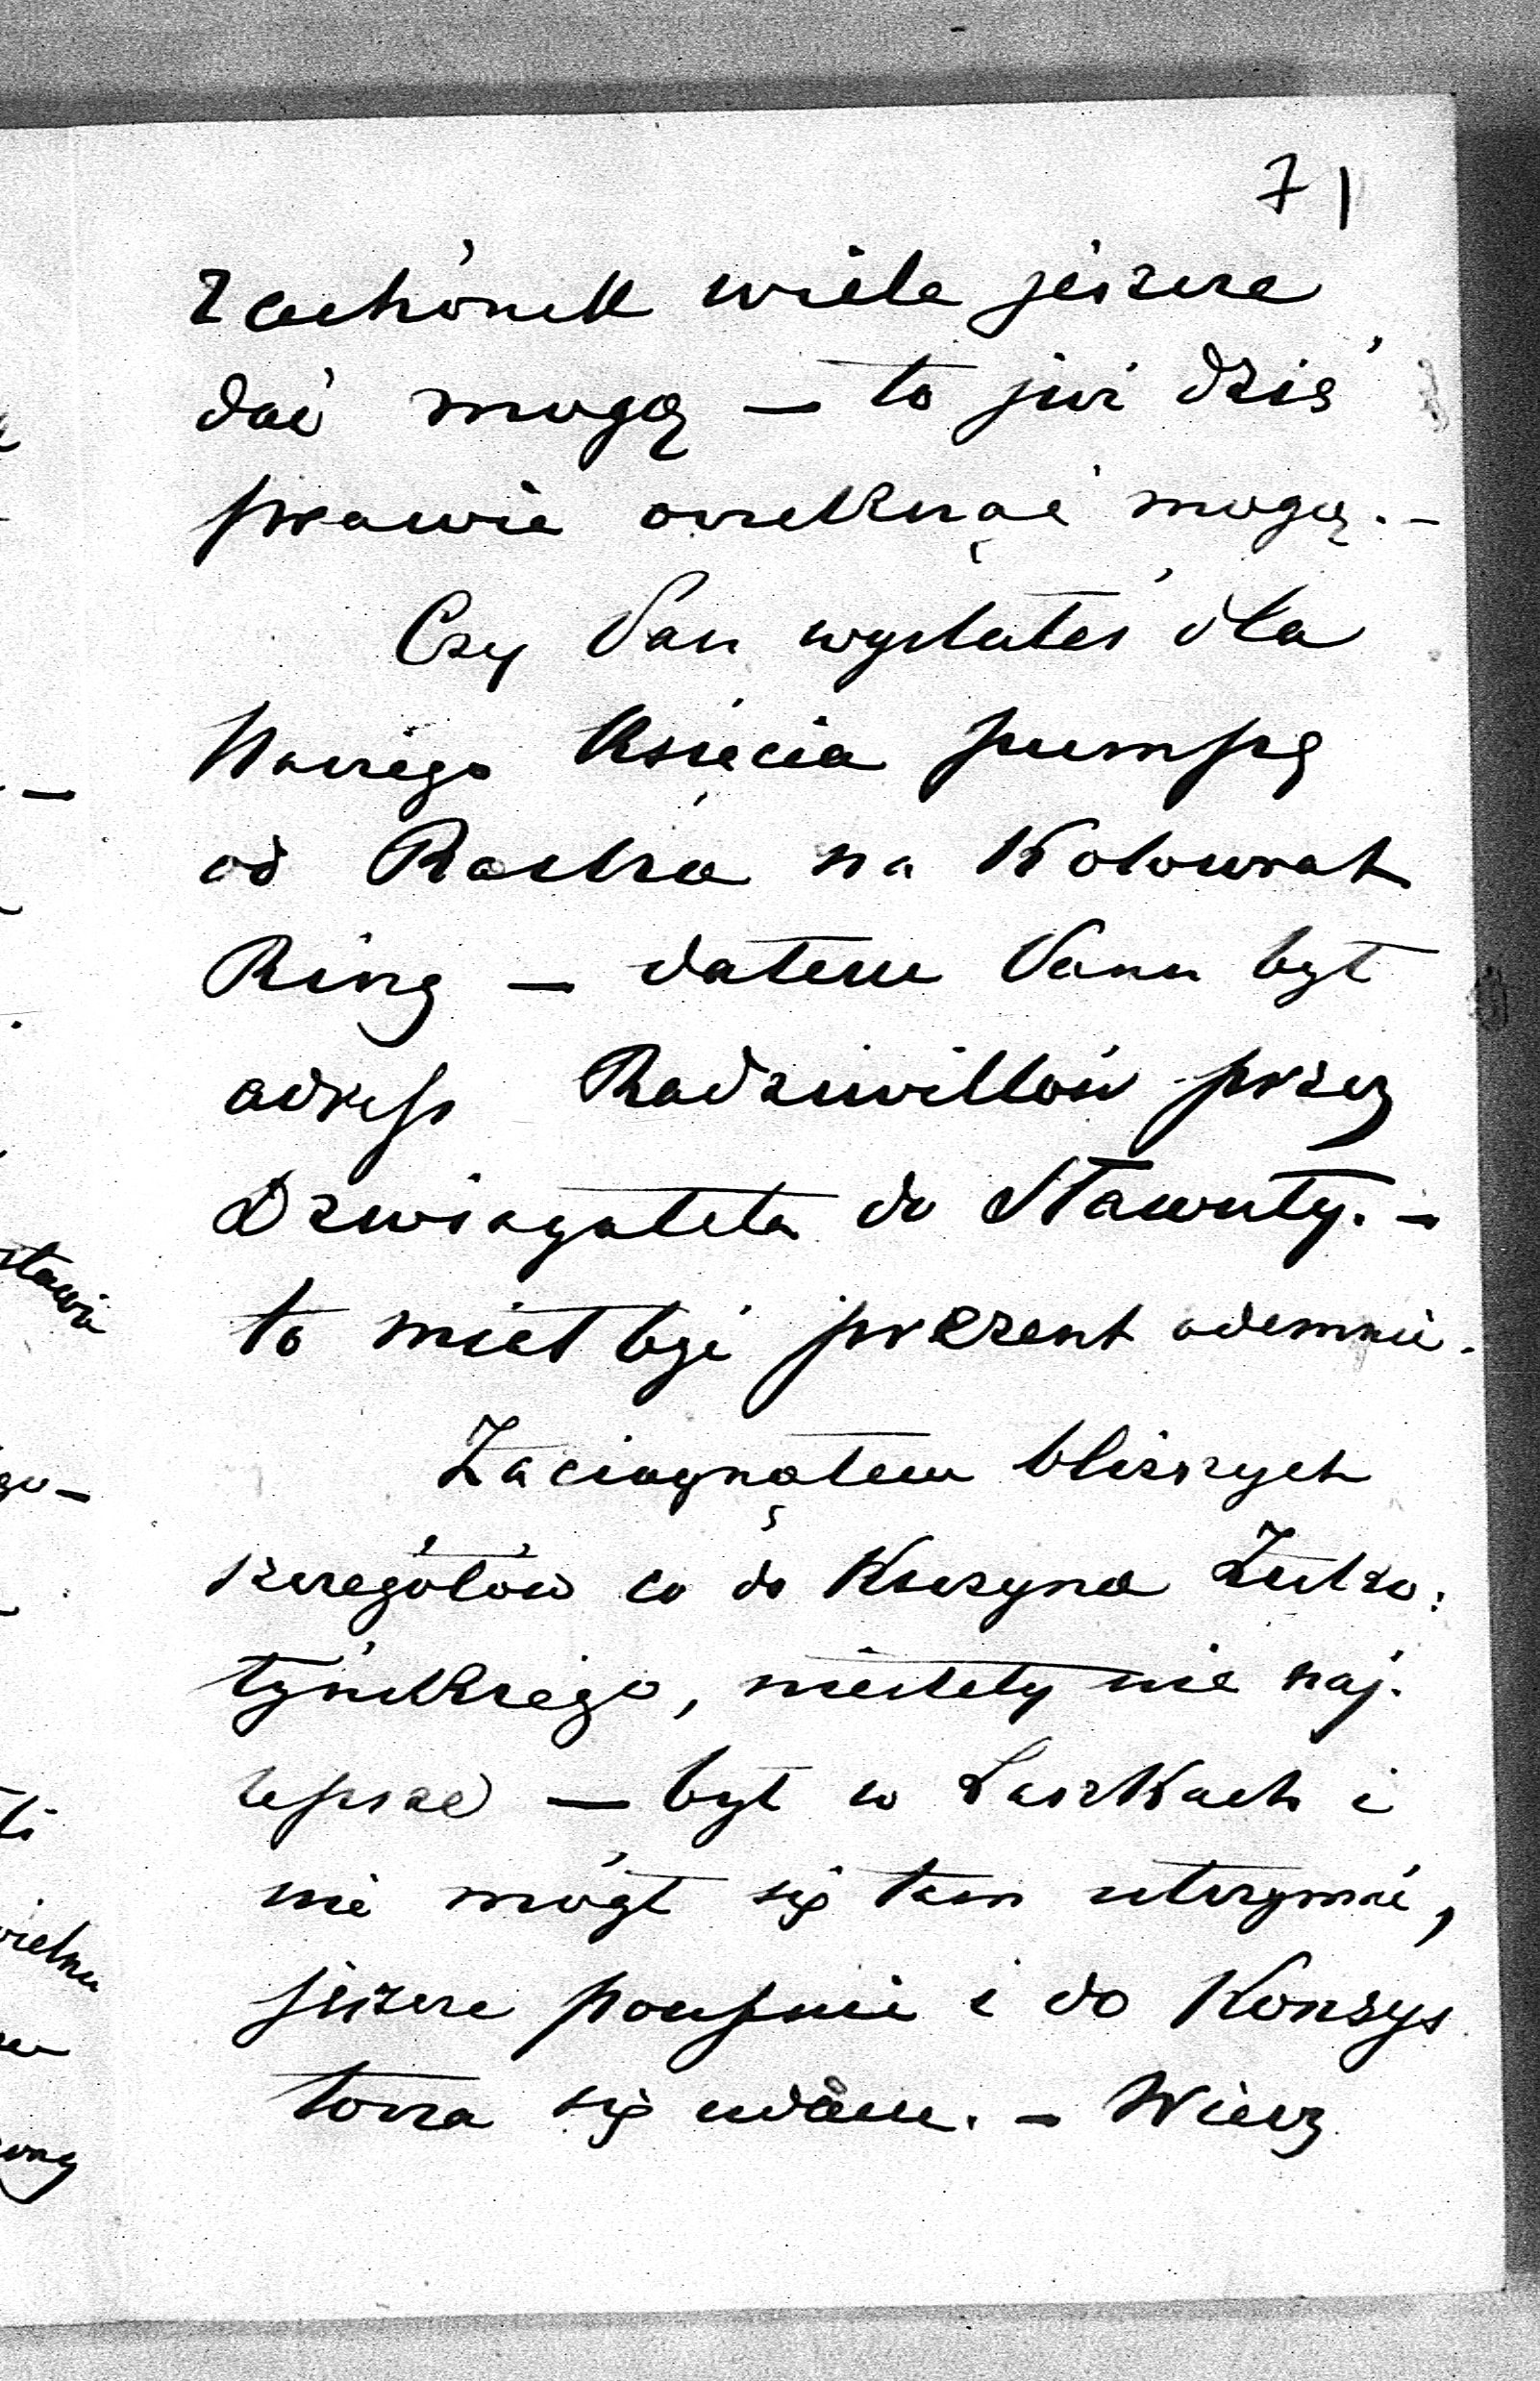 71
rachónek wiele jeszcze
dać mogą — to już dziś
prawie orzeknąć mogę. —
Czy Pan wysłałeś dla
Naszego Księcia pumpę
od na Kolowrat
Ring — dałem Panu był
adress Radziwiłłów przez
do Sławuty. —
to miał być prezent odemnie.
Zaciągnąłem bliższych
szczegółów co do Kuzyna
tyńskiego, niestety nie naj-
lepsze — był w Laszkach i
nie mógł się tam utrzymać,
jeszcze poufnie i do Konsys
torza się udam. — Wiesz